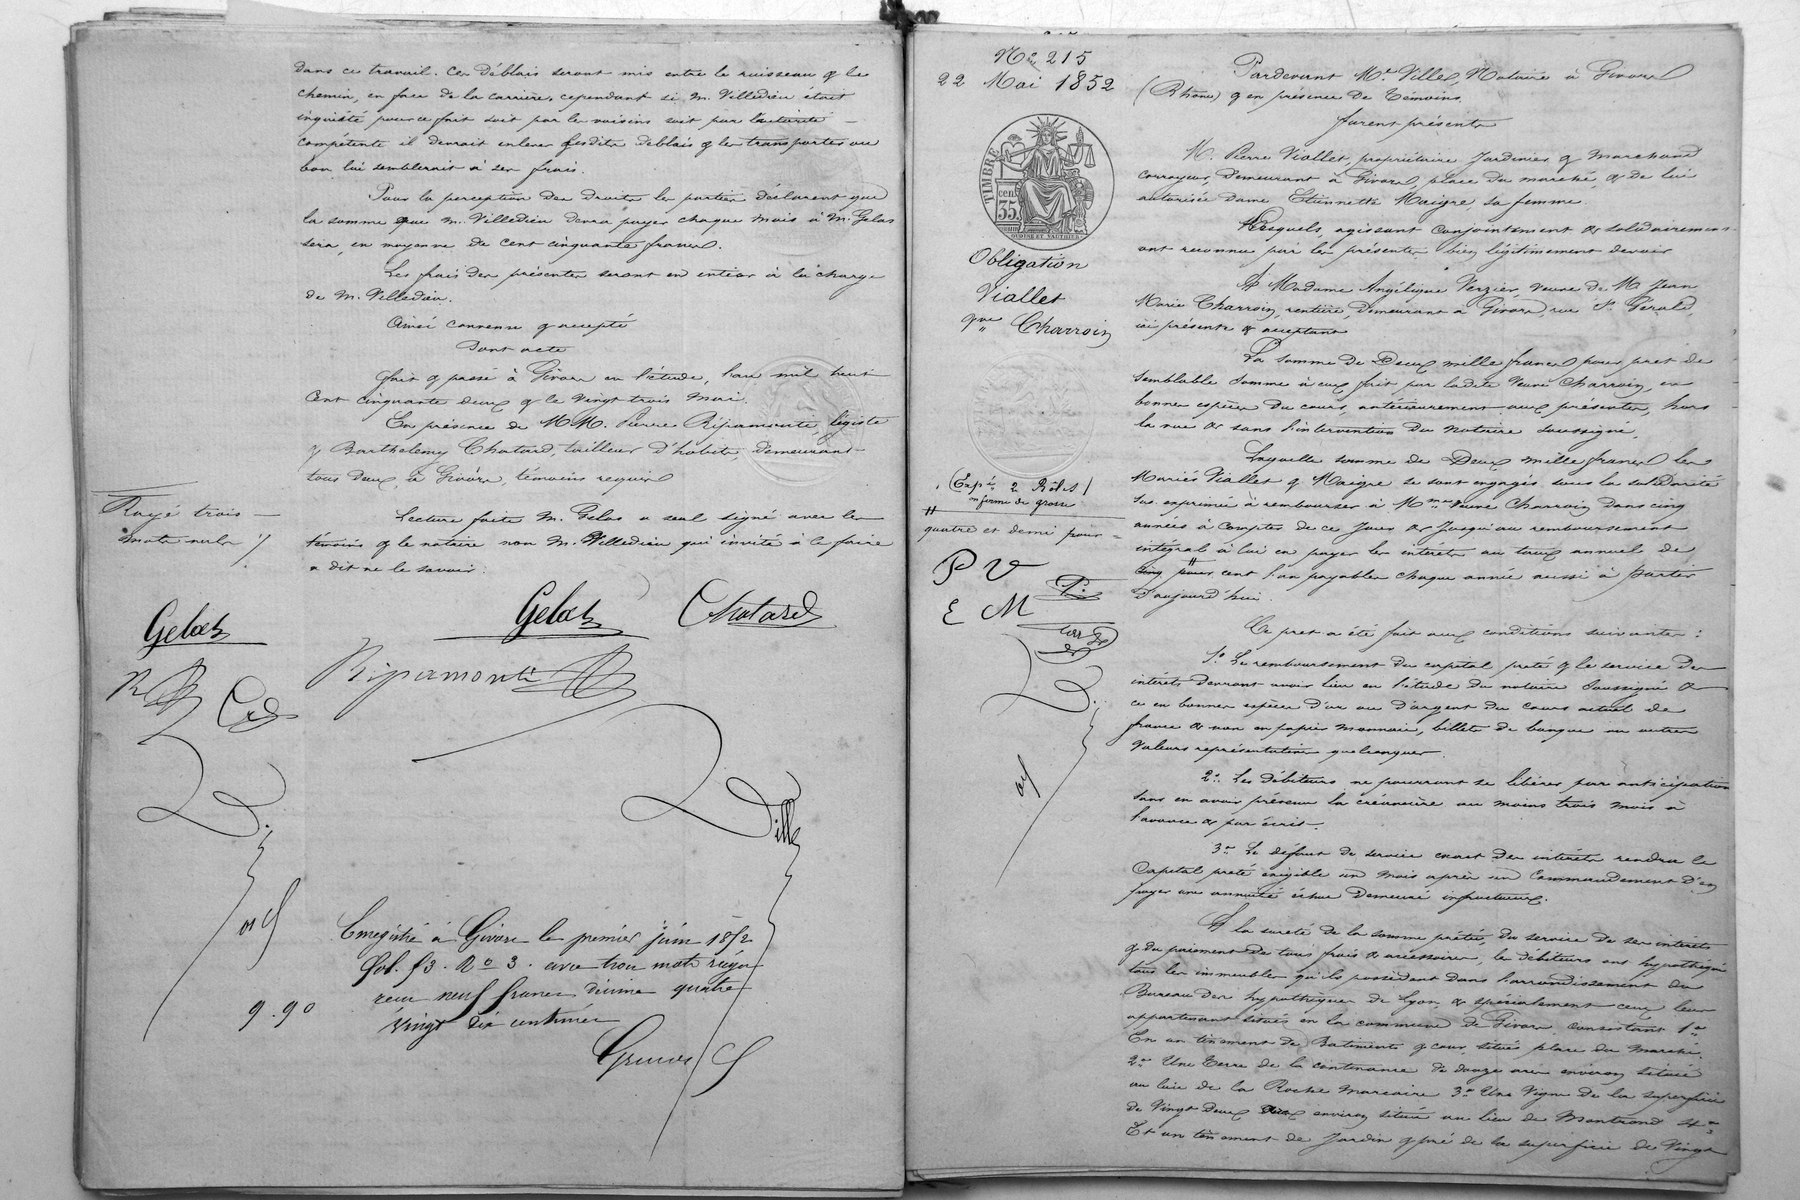 dans ce travail. Ces Déblais seront mis entre le ruisseau & le
chemin, en face de la carrière, cependant si M. Villedieu était
inquiété pour ce fait soit par les voisins soit par l'autorité
compétente il devrait enlever lesdits déblais & les transporter ou
bon lui semblerait à ses frais.
Pour la perception des droits les parties déclarent que
la somme que M. Villedieu devra payer chaque mois à M. Gelas
sera, en moyenne de cent cinquante francs.
Les frais des présentes seront en entier à la charge
de M. Villedieu.
Ainsi convenu & accepté
Dont acte
fait & passé à Givors en l'étude, l'an mil huit
Cent cinquante deux & le vingt trois Mai.
En présence de MM. Pierre Ripamonti, légiste
& Barthelemy Chatard, tailleur d'habits, demeurant
tous deux, à Givors, témoins requis
Lecture faite M. Gelas a seul signé avec les
témoins & le notaire non M. Villedieu qui invité à le faire
a dit ne le savoir.
Rayé trois
mots nuls
Gelas
Gelas
Chatard
Ripamonti
Ville
Enregistré à Givors le premier juin 1852
fol. 53. No 3. avec trois mots rayés
reçu neuf francs décime quatre
vingt dix centimes
9.90
No 215
22 Mai 1852
TIMBRE
cen.
35
OUDINÉ ET VAUTHIER
Obligation
Viallet
Charroin
(Exp. 2 Rôles)
en forme de grosse
quatre et demi pour
P V
E M
Pardevant Me Ville, Notaire à Givors
(Rhône) & en présence de témoins
furent présents
M. Pierre Viallet, propriétaire Jardinier & marchand
corroyeur, demeurant à Givors, place du marché, & de lui
autorisée dame Etiennette Maigre, sa femme.
Lesquels, agissant conjointement & solidairement
ont reconnu par les présentes bien légitimement devoir
A Madame Angélique Verzier veuve de M. Jean
Marie Charroin, rentière, demeurant à Givors rue St Gérald,
ici présente & acceptant
La somme de Deux mille francs pour prêt de
semblable somme à eux fait par ladite Veuve Charroin, en
bonnes espèces du cours, antérieurement aux présentes, hors
la vue & sans l'intervention du notaire soussigné.
Laquelle somme de Deux mille francs les
Mariés Viallet & Maigre se sont engagés sous la solidarité
sus exprimée à rembourser à Mme veuve Charroin dans cinq
années à compter de ce jour & jusqu'au remboursement
intégral à lui en payer les intérêts au taux annuel de
cinq pour cent l'an payables chaque année aussi à partir
d'aujourd'hui.
Ce prêt a été fait aux conditions suivantes :
1o Le remboursement du capital prêté & le service des
intérêts devront avoir lieu en l'étude du notaire soussigné &
ce en bonnes espèces d'or ou d'argent du cours actuel de
france & non en papier monnaie, billets de banque ou autres
valeurs représentatives quelconques.
2o Les débiteurs ne pourront se libérer par anticipation
sans en avoir prévenu la créancière au moins trois mois à
l'avance & par écrit.
3o Le défaut de service exact des intérêts rendra le
Capital prêté exigible un mois après un Commandement d'en
payer une annuité échue Demeuré infructueux.
A la sureté de la somme prêtée, du service de ses intérêts
& du paiement de tous frais & accessoires, les débiteurs ont hypothéqué
tous les immeubles qu'ils possèdent dans l'arrondissement du
Bureau des hypothèques de Lyon & spécialement ceux leur
appartenant situés en la commune de Givors consistant 1o
En un tènement de Batiments & cour, situés place du Marché.
2o Une Terre de la contenance de douze ares environ située
au lieu de la Roche 3o Une Vigne de la superficie
de Vingt deux ares environ située au lieu de Montrond 4o
Et un tènement de Jardin & pré de la superficie de Vingt